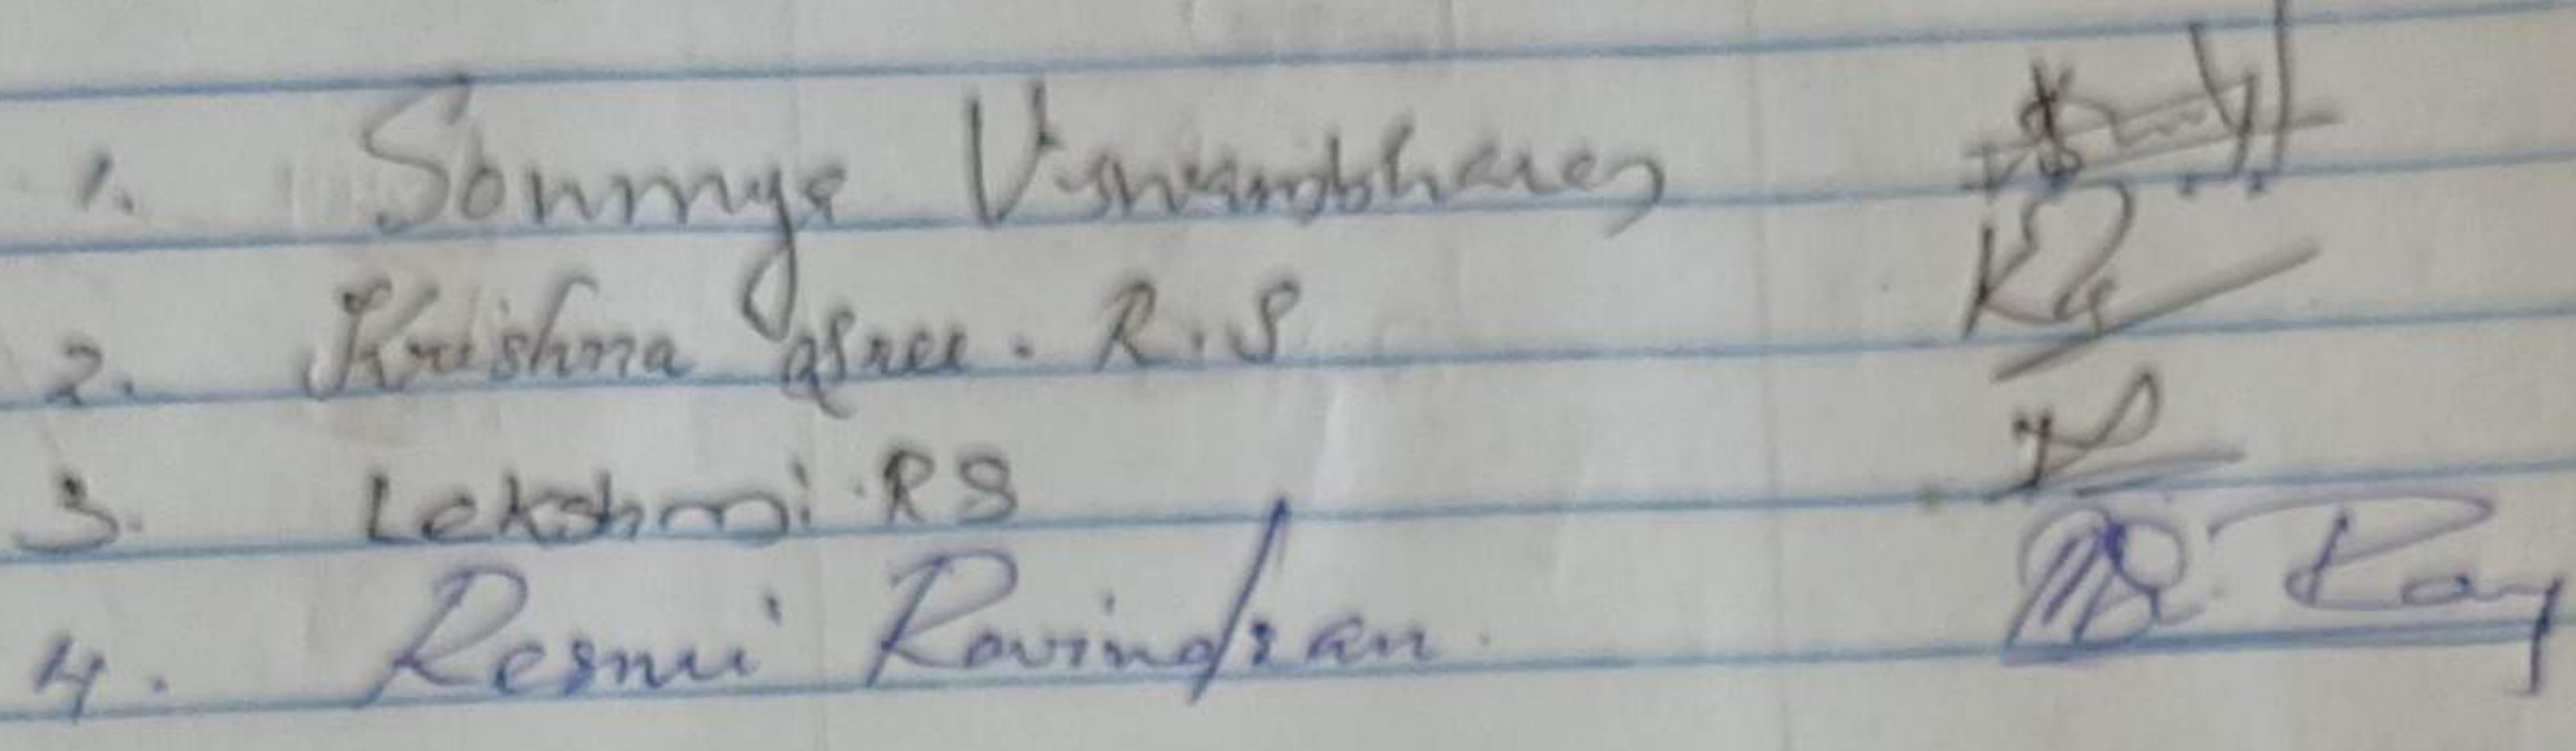 1. Soumya Viswambharan
2. Krishna Sree. R.S
3. Lekshmi. RS
4. Resmi Ravindran.